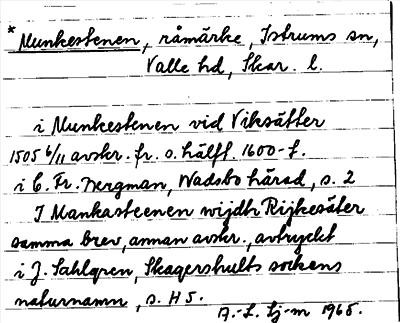 * Munkestenen, råmärke, Istrums sn,
Valle hd, Skar. l.
i Munkestenen vid Viksätter
1505 6/11 avskr. fr. s. hälft. 1600-t.
i C. Fr. Bergman, Wadsbo härad, s. 2
I Mankasteenen wijdh Rijkesäter
samma brev, annan avskr., avtryckt
i J. Sahlgren, Skagershults sockens
naturnamn, s. H 5.
A.-L. Lj-m 1965.